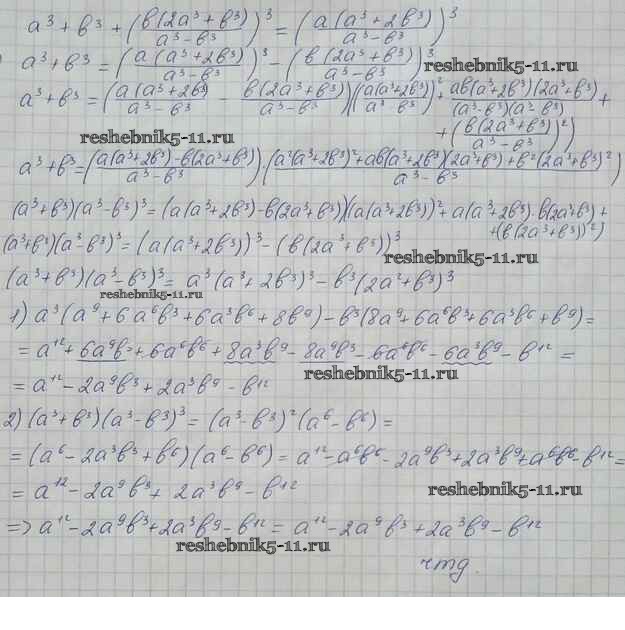 a³ + b³ + (b(2a³ + b³)/(a³ − b³))³ = (a(a³ + 2b³)/(a³ − b³))³
a³ + b³ = (a(a³ + 2b³)/(a³ − b³))³ − (b(2a³ + b³)/(a³ − b³))³
reshebnik5-11.ru
a³ + b³ = (a(a³ + 2b³)/(a³ − b³) − b(2a³ + b³)/(a³ − b³))((a(a³ + 2b³)/(a³ − b³))² + ab(a³ + 2b³)(2a³ + b³)/((a³ − b³)(a³ − b³)) +
+ (b(2a³ + b³)/(a³ − b³))²)
reshebnik5-11.ru
a³ + b³ = (a(a³ + 2b³) − b(2a³ + b³)/(a³ − b³))·(a²(a³ + 2b³)² + ab(a³ + 2b³)(2a³ + b³) + b²(2a³ + b³)²/(a³ − b³))
(a³ + b³)(a³ − b³)³ = (a(a³ + 2b³) − b(2a³ + b³))((a(a³ + 2b³))² + a(a³ + 2b³)·b(2a³ + b³) +
+ (b(2a³ + b³))²)
(a³ + b³)(a³ − b³)³ = (a(a³ + 2b³))³ − (b(2a³ + b³))³
reshebnik5-11.ru
(a³ + b³)(a³ − b³)³ = a³(a³ + 2b³)³ − b³(2a² + b³)³
reshebnik5-11.ru
1) a³(a⁹ + 6a⁶b³ + 6a³b⁶ + 8b⁹) − b³(8a⁹ + 6a⁶b³ + 6a³b⁶ + b⁹) =
= a¹² + 6a⁹b³ + 6a⁶b⁶ + 8a³b⁹ − 8a⁹b³ − 6a⁶b⁶ − 6a³b⁹ − b¹² =
reshebnik5-11.ru
= a¹² − 2a⁹b³ + 2a³b⁹ − b¹²
2) (a³ + b³)(a³ − b³)³ = (a³ − b³)²(a⁶ − b⁶) =
= (a⁶ − 2a³b³ + b⁶)(a⁶ − b⁶) = a¹² − a⁶b⁶ − 2a⁹b³ + 2a³b⁹ + a⁶b⁶ − b¹² =
= a¹² − 2a⁹b³ + 2a³b⁹ − b¹²
reshebnik5-11.ru
=> a¹² − 2a⁹b³ + 2a³b⁹ − b¹² = a¹² − 2a⁹b³ + 2a³b⁹ − b¹²
reshebnik5-11.ru
чтд.